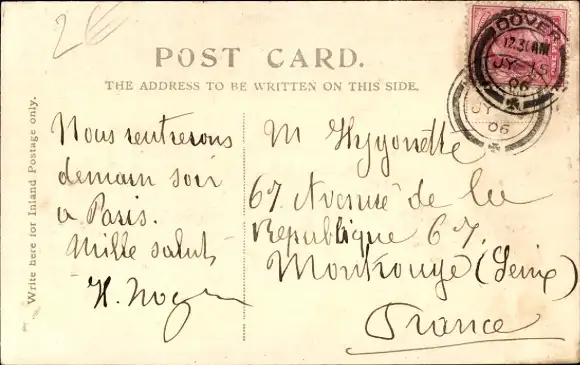 2€
POST CARD.
THE ADDRESS TO BE WRITTEN ON THIS SIDE.
Write here for Inland Postage only.
Nous rentrerons
demain soir
a Paris.
Mille saluts
H.
M Hygonette
67 Avenue de la
Republique 67.
Montrouge (Seine)
France
DOVER
12.30 AM
JY 15
06
JY
06